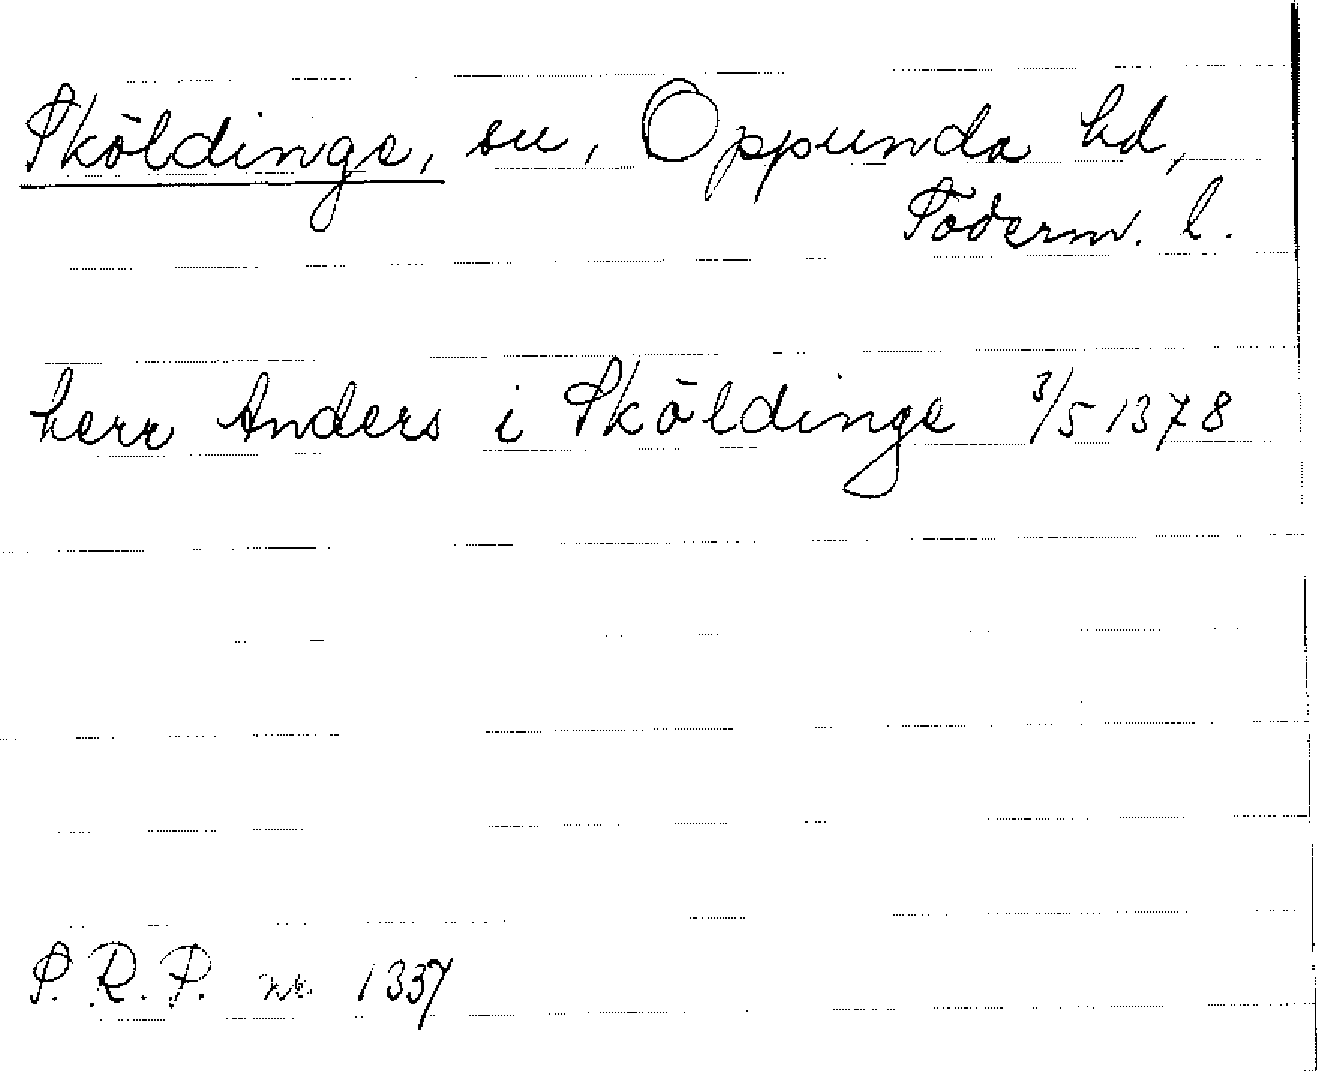 Sköldinge, sn, Oppunda hd,
Söderm. l.
herr Anders i Sköldinge 3/5 1378
S. R. P. nr 1337